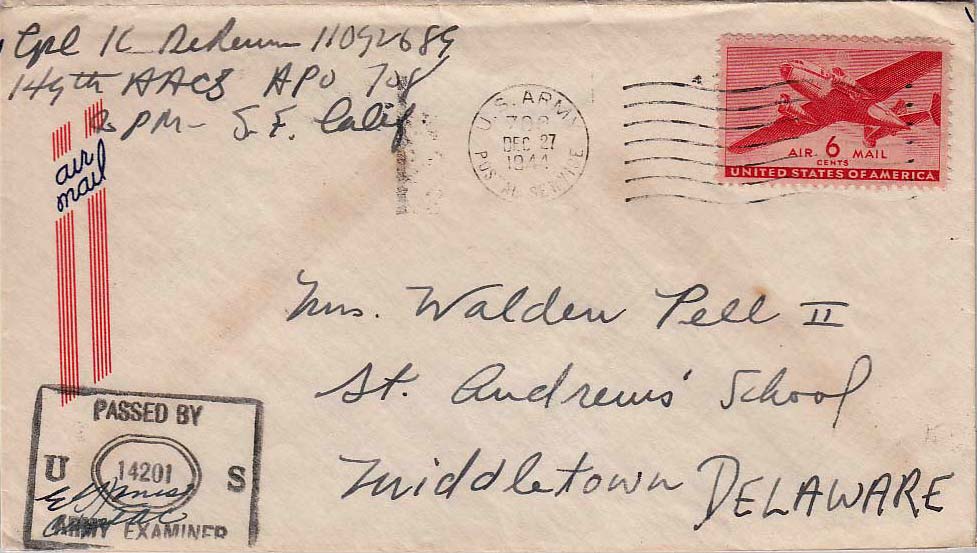 Cpl K DeReum 11092689
149th AACS APO 708
% PM - S.F. Calif
air
mail
U.S. ARMY
708
DEC 27
1944
POSTAL SERVICE
AIR 6 MAIL
CENTS
UNITED STATES OF AMERICA
Mrs. Walden Pell II
St. Andrews' School
Middletown DELAWARE
PASSED BY
U 14201 S
ARMY EXAMINER